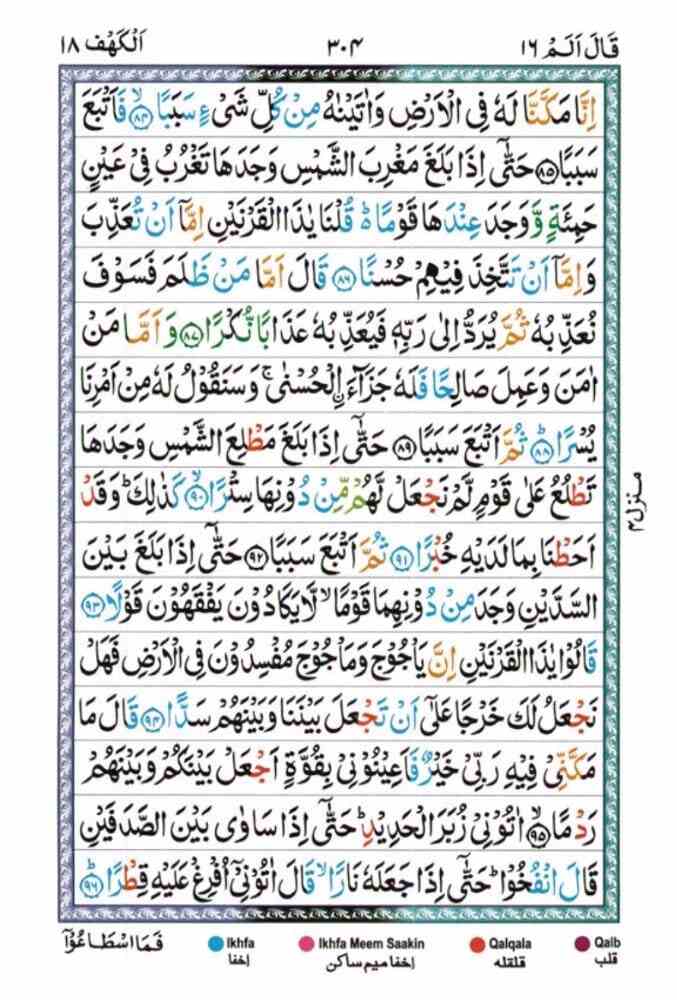 قَالَ اَلَمْ ١٦ ٣٠٤ اَلْكَهْف ١٨
اِنَّا مَكَّنَّا لَهٗ فِى الْاَرْضِ وَاٰتَيْنٰهُ مِنْ كُلِّ شَىْءٍ سَبَبًا ۙ‏﴿۸۴﴾ فَاَتْبَعَ
سَبَبًا ﴿۸۵﴾ حَتّٰٓى اِذَا بَلَغَ مَغْرِبَ الشَّمْسِ وَجَدَهَا تَغْرُبُ فِىْ عَيْنٍ
حَمِئَةٍ وَّوَجَدَ عِنْدَهَا قَوْمًا ؕ قُلْنَا يٰذَا الْقَرْنَيْنِ اِمَّآ اَنْ تُعَذِّبَ
وَاِمَّآ اَنْ تَتَّخِذَ فِيْهِمْ حُسْنًا ﴿۸۶﴾ قَالَ اَمَّا مَنْ ظَلَمَ فَسَوْفَ
نُعَذِّبُهٗ ثُمَّ يُرَدُّ اِلٰى رَبِّهٖ فَيُعَذِّبُهٗ عَذَابًا نُّكْرًا ﴿۸۷﴾ وَاَمَّا مَنْ
اٰمَنَ وَعَمِلَ صَالِحًا فَلَهٗ جَزَآءَ ۨالْحُسْنٰى ۚ وَسَنَقُوْلُ لَهٗ مِنْ اَمْرِنَا
يُسْرًا ؕ﴿۸۸﴾ ثُمَّ اَتْبَعَ سَبَبًا ﴿۸۹﴾ حَتّٰٓى اِذَا بَلَغَ مَطْلِعَ الشَّمْسِ وَجَدَهَا
تَطْلُعُ عَلٰى قَوْمٍ لَّمْ نَجْعَلْ لَّهُمْ مِّنْ دُوْنِهَا سِتْرًا ۙ﴿۹۰﴾ كَذٰلِكَ ؕ وَقَدْ
اَحَطْنَا بِمَا لَدَيْهِ خُبْرًا ﴿۹۱﴾ ثُمَّ اَتْبَعَ سَبَبًا ﴿۹۲﴾ حَتّٰٓى اِذَا بَلَغَ بَيْنَ
السَّدَّيْنِ وَجَدَ مِنْ دُوْنِهِمَا قَوْمًا ۙ لَّا يَكَادُوْنَ يَفْقَهُوْنَ قَوْلًا ﴿۹۳﴾
قَالُوْا يٰذَا الْقَرْنَيْنِ اِنَّ يَاْجُوْجَ وَمَاْجُوْجَ مُفْسِدُوْنَ فِى الْاَرْضِ فَهَلْ
نَجْعَلُ لَكَ خَرْجًا عَلٰٓى اَنْ تَجْعَلَ بَيْنَنَا وَبَيْنَهُمْ سَدًّا ﴿۹۴﴾ قَالَ مَا
مَكَّنِّىْ فِيْهِ رَبِّىْ خَيْرٌ فَاَعِيْنُوْنِىْ بِقُوَّةٍ اَجْعَلْ بَيْنَكُمْ وَبَيْنَهُمْ
رَدْمًا ۙ﴿۹۵﴾ اٰتُوْنِىْ زُبَرَ الْحَدِيْدِ ؕ حَتّٰٓى اِذَا سَاوٰى بَيْنَ الصَّدَفَيْنِ
قَالَ انْفُخُوْا ؕ حَتّٰٓى اِذَا جَعَلَهٗ نَارًا ۙ قَالَ اٰتُوْنِىْٓ اُفْرِغْ عَلَيْهِ قِطْرًا ؕ﴿۹۶﴾
منزل ٤
فَمَا اسْطَاعُوْٓا
Ikhfa اخفا
Ikhfa Meem Saakin اخفا میم ساکن
Qalqala قلقله
Qalb قلب